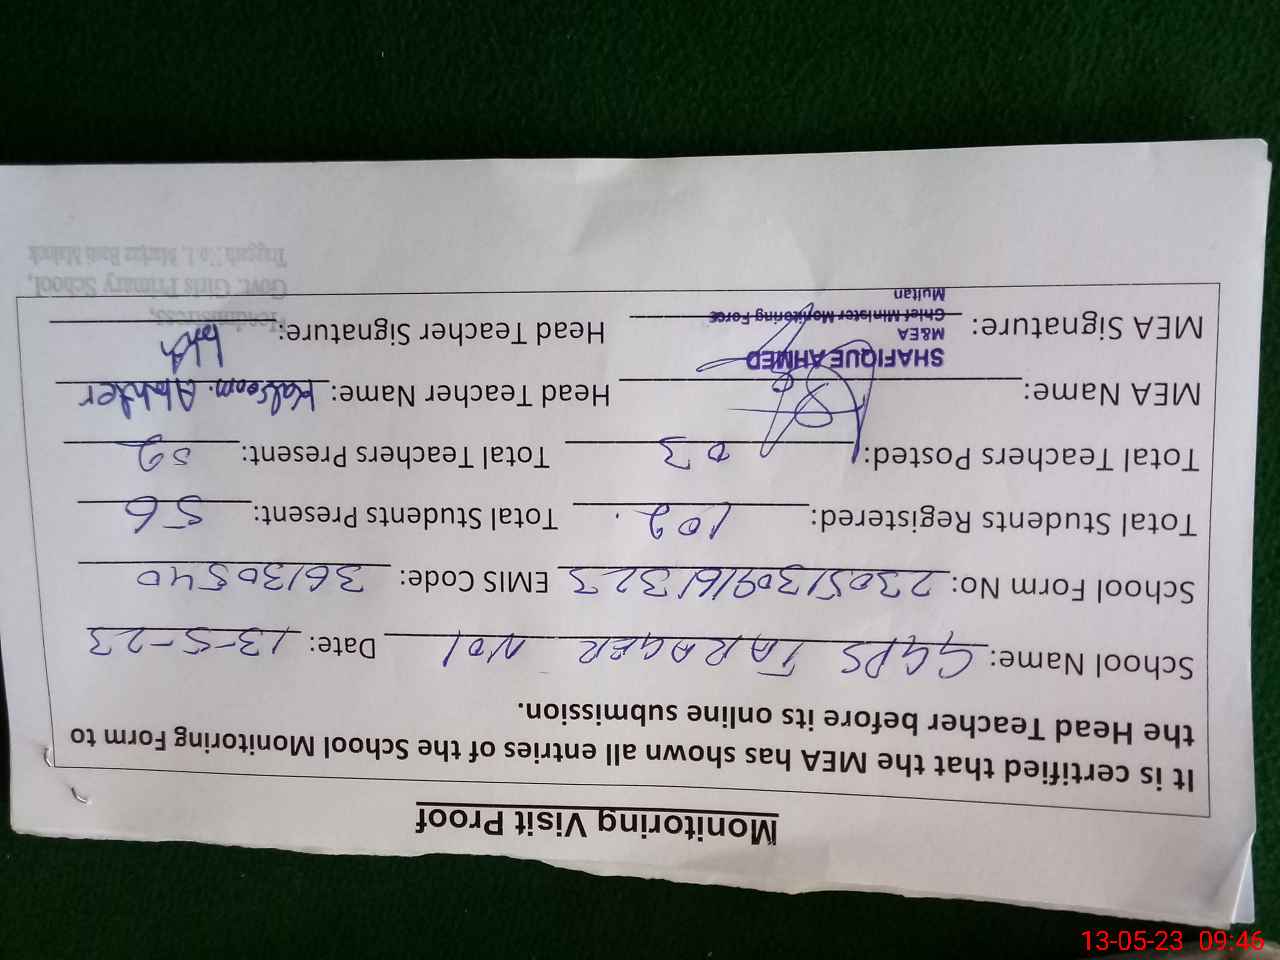 Monitoring Visit Proof
It is certified that the MEA has shown all entries of the School Monitoring Form to
the Head Teacher before its online submission.
School Name: GGPS TARAGER NO1 Date: 13-5-23
School Form No: 23051309161323 EMIS Code: 36130540
Total Students Registered: 102. Total Students Present: 56
Total Teachers Posted: 03 Total Teachers Present: 02
MEA Name: Head Teacher Name: Kalsoom. Akhter
SHAFIQUE AHMED
M&EA
Chief Minister Monitoring Force
Multan
MEA Signature: Head Teacher Signature:
Headmistress,
Govt. Girls Primary School,
No 1, Markaz
13-05-23 09:46